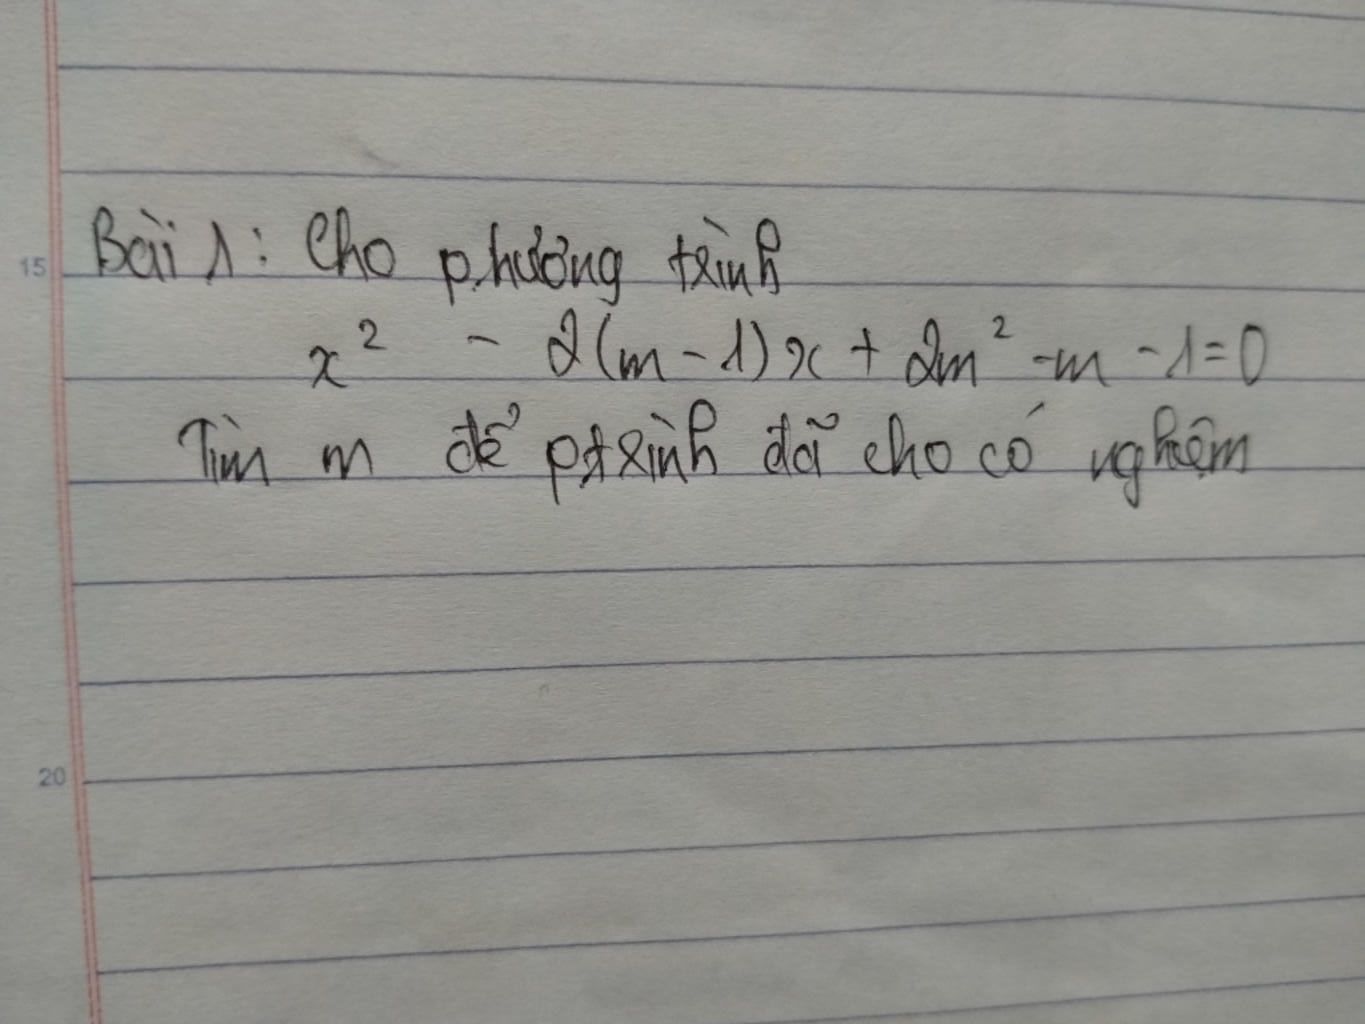 15
Bài 1: Cho phương trình
x² - 2(m-1)x + 2m² -m -1=0
Tìm m để ptrình đã cho có nghiệm
20